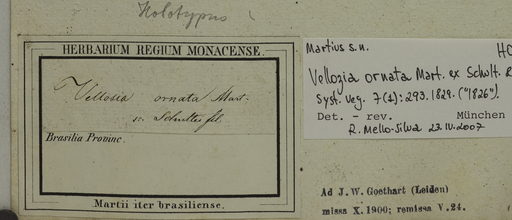 Holotypus
HERBARIUM REGIUM MONACENSE.
Vellosia ornata Mart.
Schultes fil.
Brasilia Provinc.
Martii iter brasiliense.
Martius s.n.
HO
Vellozia ornata Mart. ex Schult. &
Syst. Veg. 7(2): 293. 1829. ("1826").
Det. - rev. München
R. Mello-Silva 23.IV.2007
Ad J. W. Goethart (Leiden)
missa X. 1900; remissa V. 24.